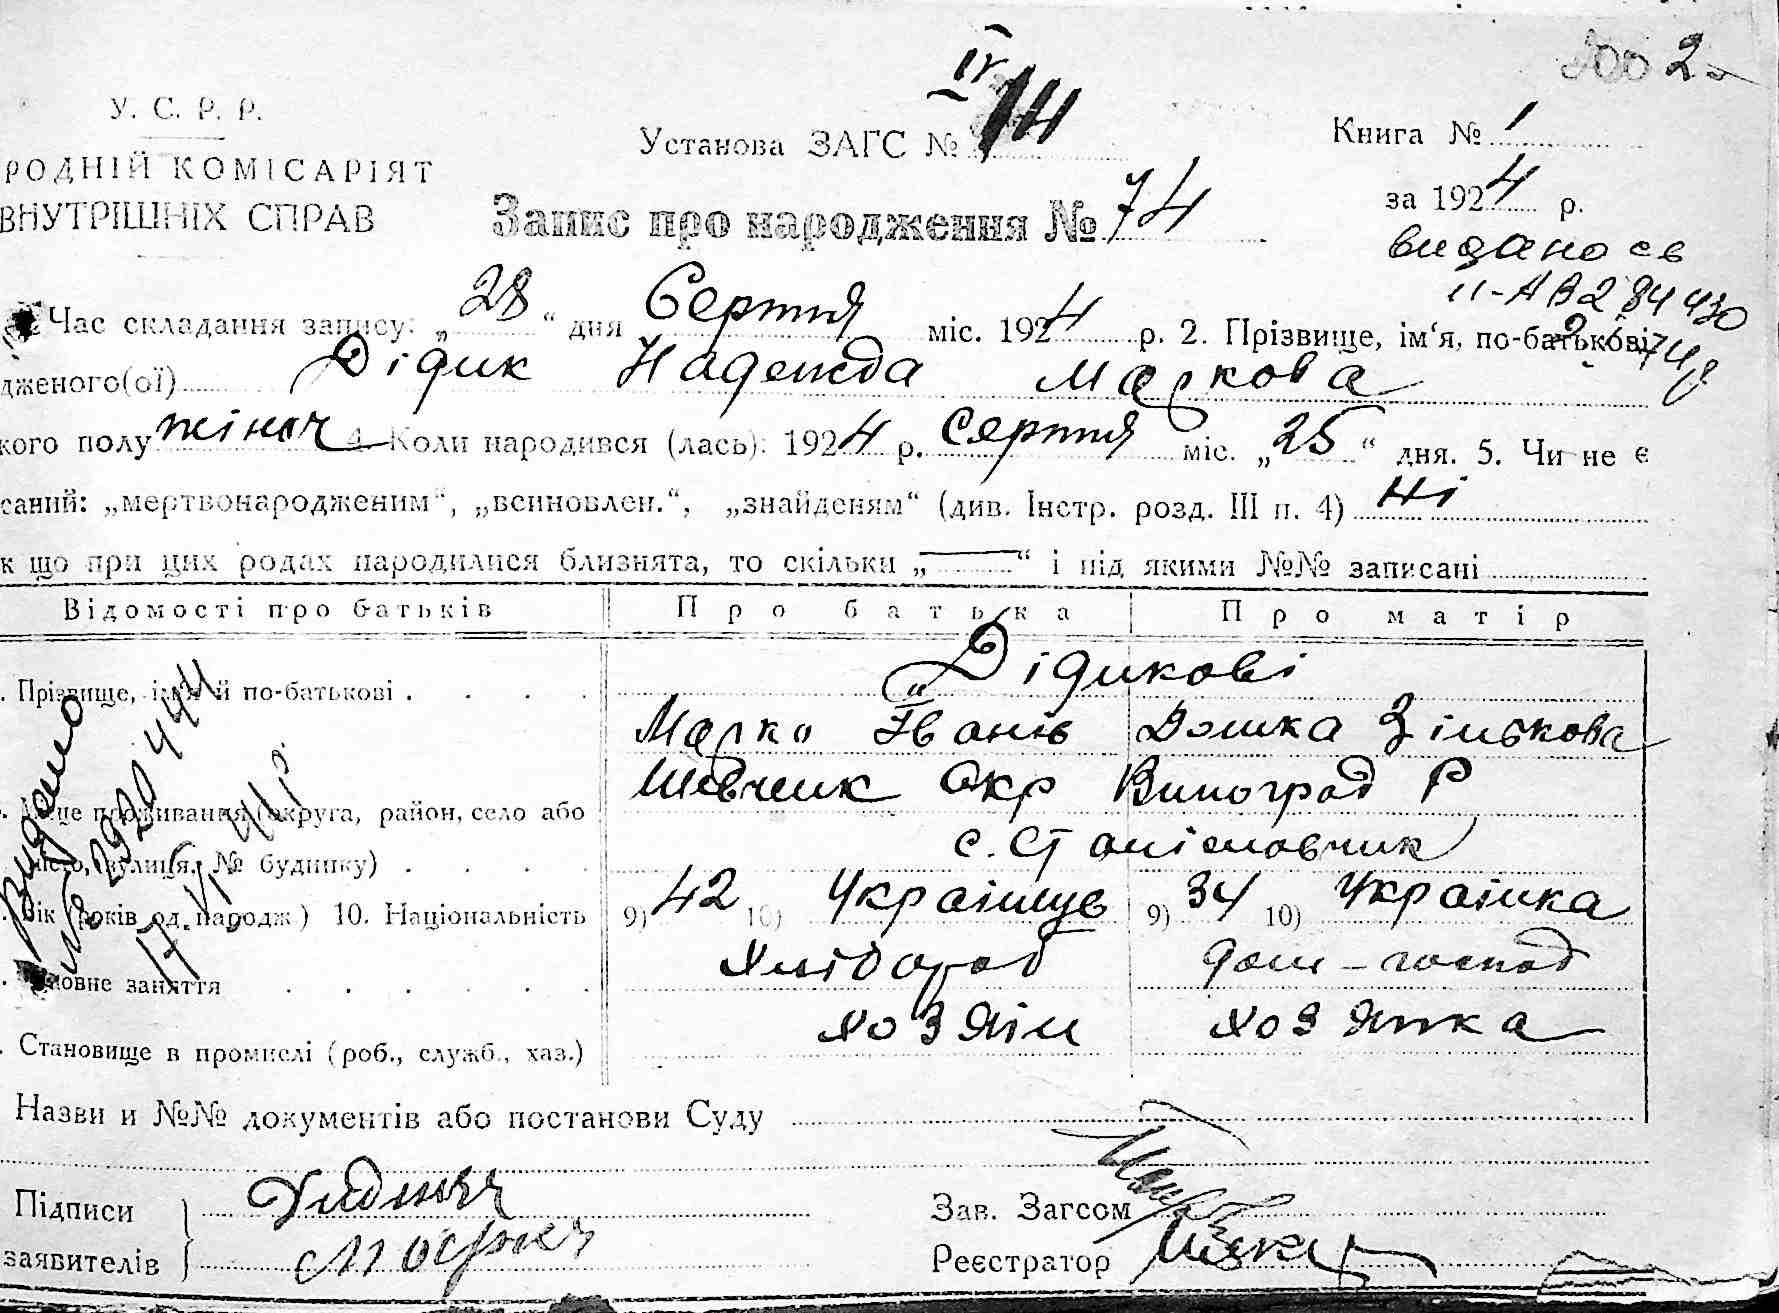 2
IV
У. С. Р. Р.
Установа ЗАГС № 14
Книга № 1
РОДНІЙ КОМІСАРІЯТ
ВНУТРІШНІХ СПРАВ
за 1924 р.
Запис про народження № 74
видано св
II-АВ 284430
Час складання запису: „28“ дня Серпня міс. 1924 р. 2. Прізвище, ім‘я, по-батькові
дженого(ої) Дідик Надежда Маркова
кого полу жіноч 4. Коли народився (лась): 1924 р. серпня міс. „25“ дня. 5. Чи не є
саний: „мертвонародженим“, „всиновлен.“, „знайденям“ (див. Інстр. розд. III п. 4) Ні
к що при цих родах народилися близнята, то скільки „—“ і під якими №№ записані
Відомості про батьків Про батька Про матір
Дідикові
. Прізвище, ім‘я й по-батькові .
Марко Іванів Домка Зінькова
Шевченк Окр Виноград Р
. Місце проживання (округа, район, село або
місто, вулиця, № будинку)
с.
. Вік (років од народж) 10. Національність 9) 42 10) Українець 9) 34 10) Українка
Видано
292044
Хлібороб дом-господ
. Головне заняття
хозяїн хозяйка
. Становище в промислі (роб., служб., хаз.)
Назви и №№ документів або постанови Суду
Підписи
заявителів
Зав. Загсом
Реєстратор